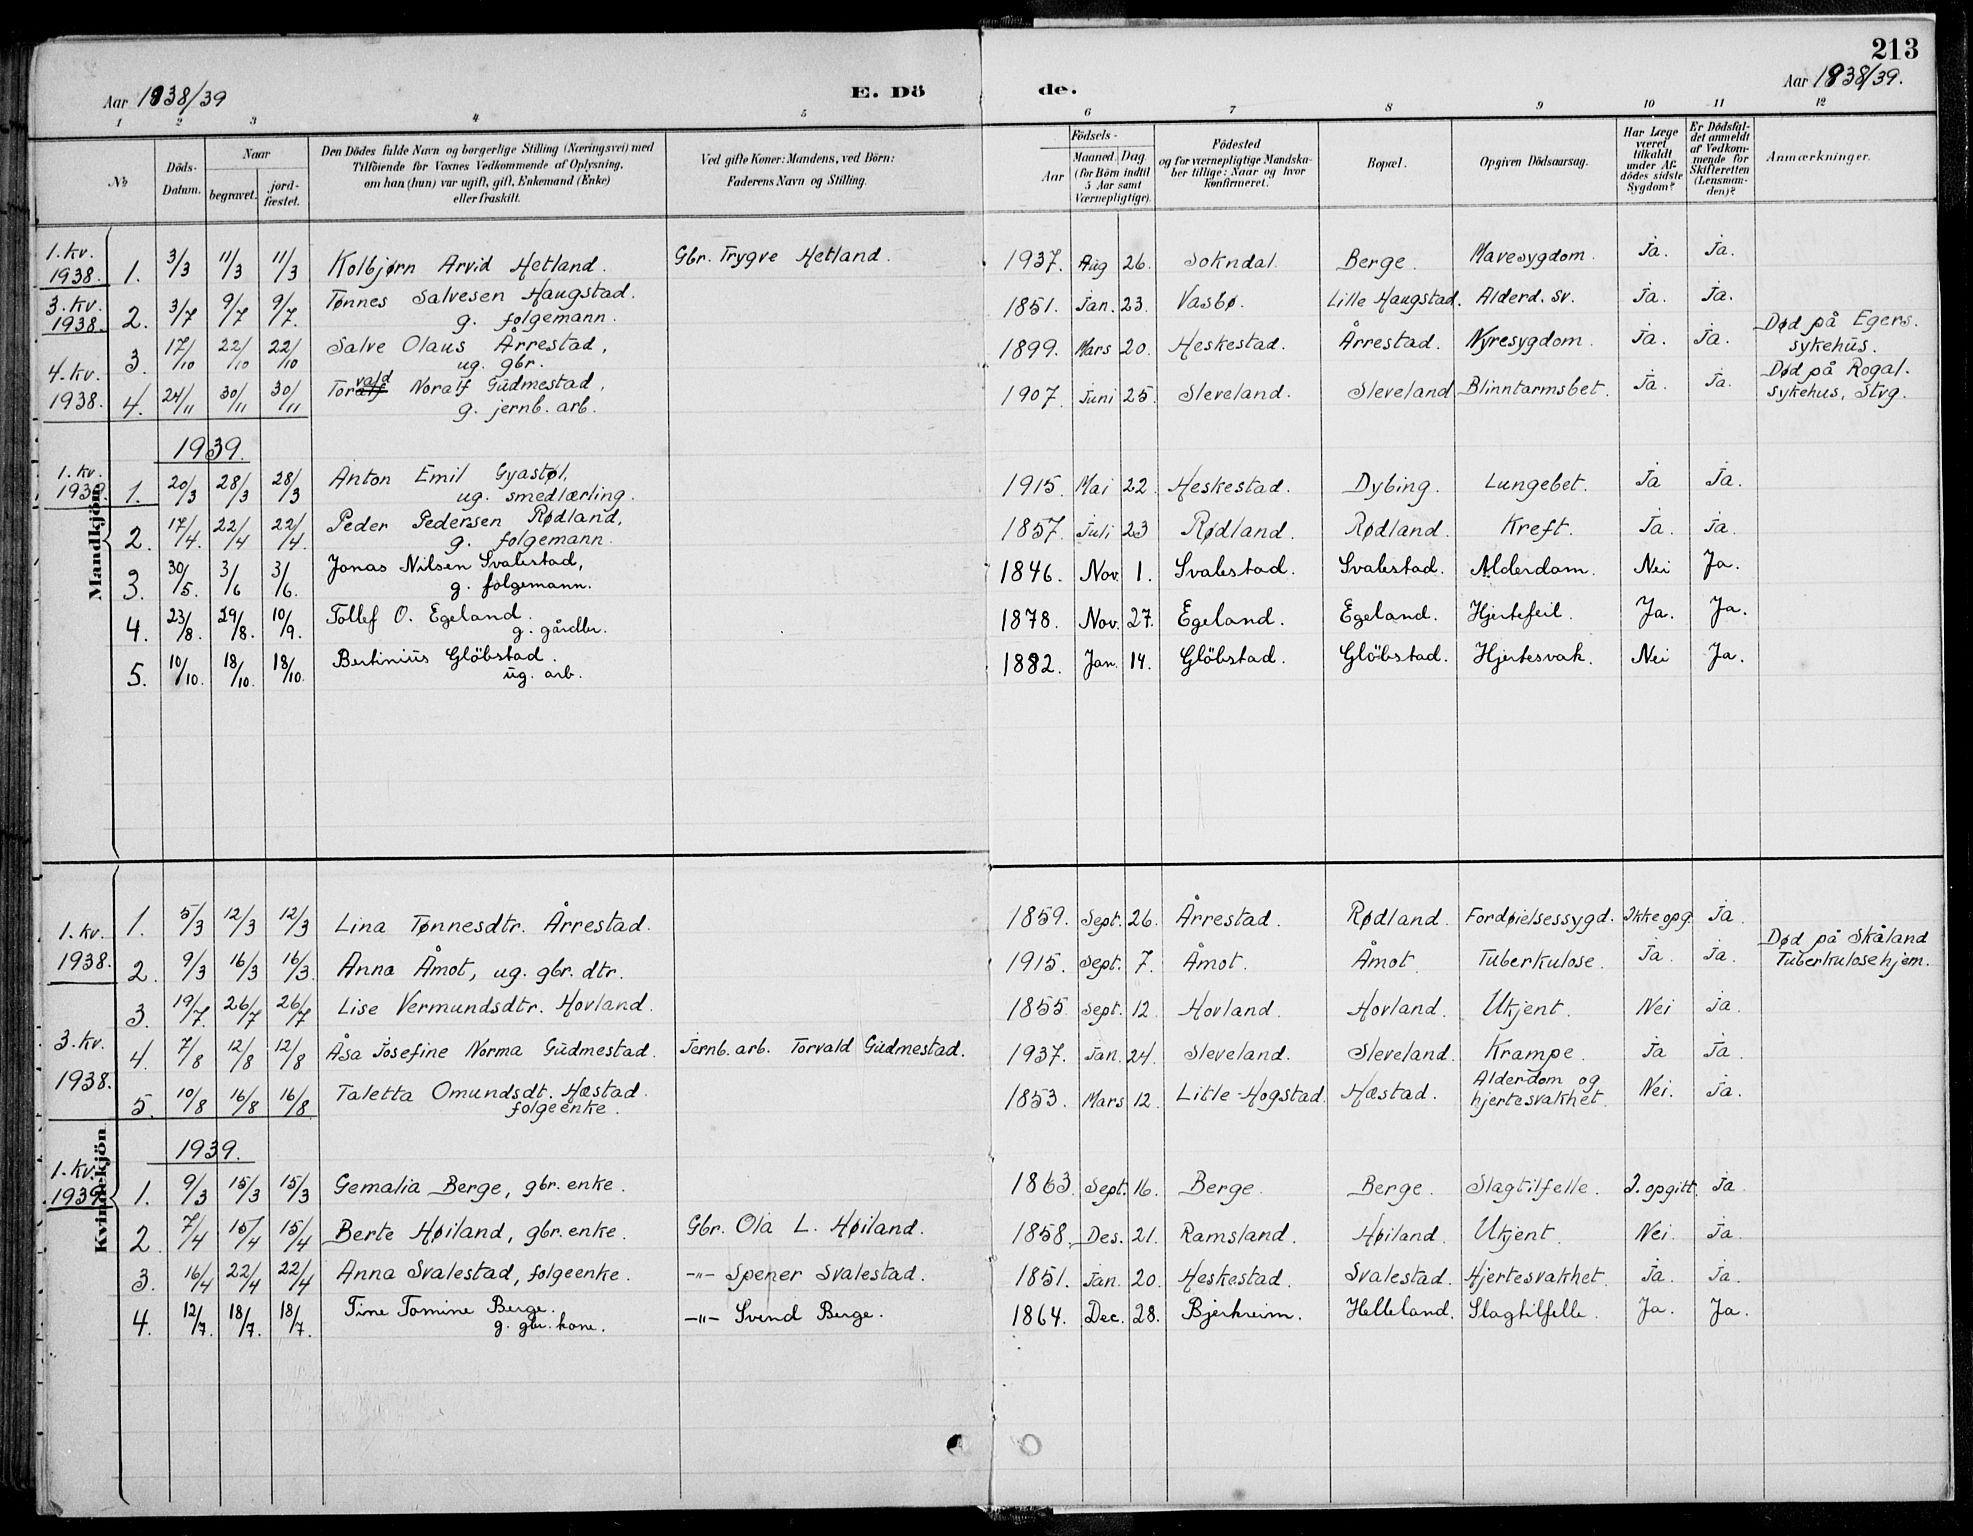 213
Aar 1938/39
E. Dö
de.
Aar 1938/39.
1 2 3 4 5 6 7 8 9 10 11 12
No
Döds-Datum.
Naar
begravet.
jord-fæstet.
Den Dödes fulde Navn og borgerlige Stilling (Næringsvei) med
Tilföiende for Voxnes Vedkommende af Oplysning,
om han (hun) var ugift, gift, Enkemand (Enke)
eller fraskilt.
Ved gifte Koner: Mandens, ved Börn:
Faderens Navn og Stilling.
Födsels-
Aar
Maaned. Dag
(for Börn indtil
5 Aar samt
Værnepligtige).
Födested
og for værnepligtige Mandska-
ber tillige: Naar og hvor
konfirmeret.
Bopæl.
Opgiven Dödsaarsag.
Har Læge
været
tilkaldt
under Af-
dödes sidste
Sygdom?
Er Dödsfal-
det anmeldt
af Vedkom-
mende for
Skifteretten
(Lensman-
den)?
Anmærkninger.
Mandkjön
1. kv. 1938. 1. 3/3 11/3 11/3 Kolbjørn Arvid Hetland. Gbr. Trygve Hetland. 1937. Aug 26. Sokndal. Berge. Mavesygdom. Ja. Ja.
3. kv. 1938. 2. 3/7 9/7 9/7. Tønnes Salvesen Haugstad. 1851. Jan. 23. Vasbø. Lille Haugstad. Alderd. sv. Ja. Ja.
g. folgemann.
3. 17/10 22/10 22/10 Salve Olaus Årrestad, 1899. Mars 20. Heskestad. Årrestad. Nyresygdom. Ja. Ja. Død på Egers.
ug. gbr. sykehus.
4. kv. 1938. 4. 24/11 30/11 30/11 Torvald Noralf Gudmestad, 1907. Juni 25. Sleveland. Sleveland Blinntarmsbet. Ja. Ja. Død på Rogal.
g. jernb. arb. sykehus, Stvg.
1939.
1. kv. 1939. 1. 20/3 28/3 28/3 Anton Emil Gyastøl, 1915. Mai 22. Heskestad. Dybing. Lungebet. Ja Ja.
ug. smedlærling.
2. 17/4. 22/4 22/4. Peder Pedersen Rødland, 1857. Juli 23 Rødland. Rødland. Kreft. Ja. Ja.
g. folgemann.
3. 30/5. 3/6 3/6. Jonas Nilsen Svalestad, 1846. Nov. 1. Svalestad. Svalestad. Alderdom. Nei Ja.
g. folgemann.
4. 23/8. 29/8. 10/9. Tollef O. Egeland. 1878. Nov. 27. Egeland. Egeland. Hjertefeil. Ja. Ja.
g. gårdbr.
5. 10/10. 18/10. 18/10. Bertinius Glöbstad. 1882. Jan. 14. Glöbstad. Glöbstad. Hjertesvak. Nei Ja.
ug. arb.
Kvindekjön
1. kv. 1938. 1. 5/3 12/3 12/3 Lina Tønnesdtr. Årrestad. 1859. Sept. 26. Årrestad. Rødland. Fordøielsessygd. Ikke opg. Ja.
2. 9/3 16/3 16/3 Anna Åmot, ug. gbr. dtr. 1915. Sept. 7. Åmot. Åmot. Tuberkulose. Ja. Ja. Død på Skåland
Tuberkulosehjem.
3. 19/7. 26/7 26/7 Lise Vermundsdtr. Hovland. 1855. Sept. 12. Hovland. Hovland. Ukjent. Nei Ja.
3. kv. 1938. 4. 7/8 12/8 12/8 Åsa Josefine Norma Gudmestad. Jernb. arb. Torvald Gudmestad. 1937. Jan. 24. Sleveland. Sleveland. Krampe. Ja Ja.
5. 10/8 16/8 16/8 Taletta Omundsdt. Hæstad. 1853. Mars 12. Litle-Hogstad. Hæstad. Alderdom og Nei. Ja.
folgeenke. hjertesvakhet.
1939.
1. kv. 1939. 1. 9/3 15/3 15/3 Gemalia Berge, gbr. enke. 1863. Sept. 16. Berge. Berge. Slagtilfelle. I. opgitt. Ja.
2. 7/4 15/4 15/4 Berte Høiland, gbr. enke. Gbr. Ola L. Høiland. 1858. Des. 21. Ramsland. Høiland. Ukjent. Nei. Ja.
3. 16/4 22/4 22/4 Anna Svalestad, folgeenke. -"- Spener Svalestad. 1851. Jan. 20. Heskestad. Svalestad. Hjertesvakhet. Ja. Ja.
4. 12/7. 18/7. 18/7. Tine Tomine Berge. -"- Svend Berge. 1864. Dec. 28. Bjerkreim. Helleland. Slagtilfelle. Ja. Ja.
g. gbr. kone.